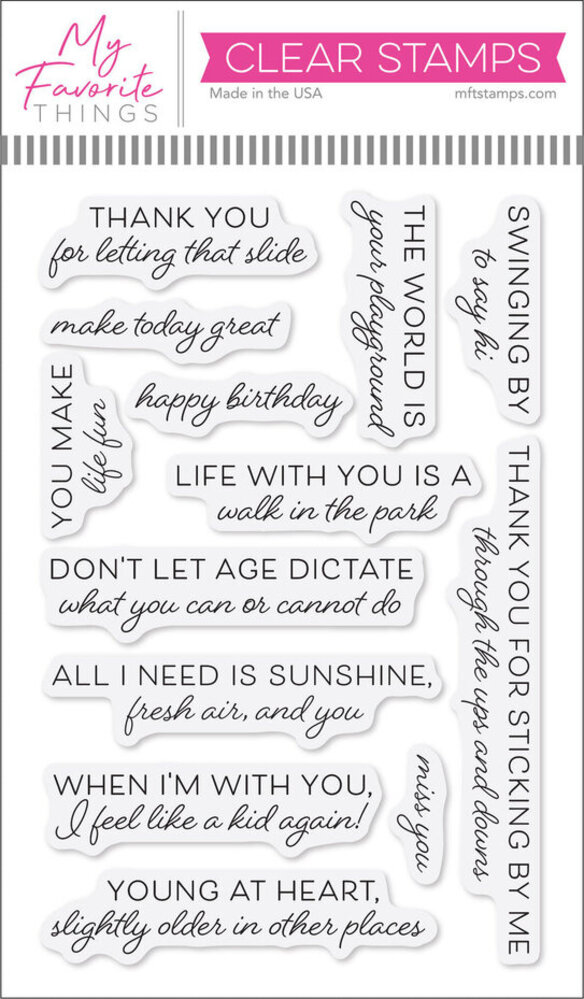 My
Favorite
THINGS
CLEAR STAMPS
Made in the USA
mftstamps.com
THANK YOU
for letting that slide
THE WORLD IS
your playground
SWINGING BY
to say hi
make today great
YOU MAKE
life fun
happy birthday
LIFE WITH YOU IS A
walk in the park
THANK YOU FOR STICKING BY ME
through the ups and downs
DON'T LET AGE DICTATE
what you can or cannot do
ALL I NEED IS SUNSHINE,
fresh air, and you
WHEN I'M WITH YOU,
I feel like a kid again!
miss you
YOUNG AT HEART,
slightly older in other places